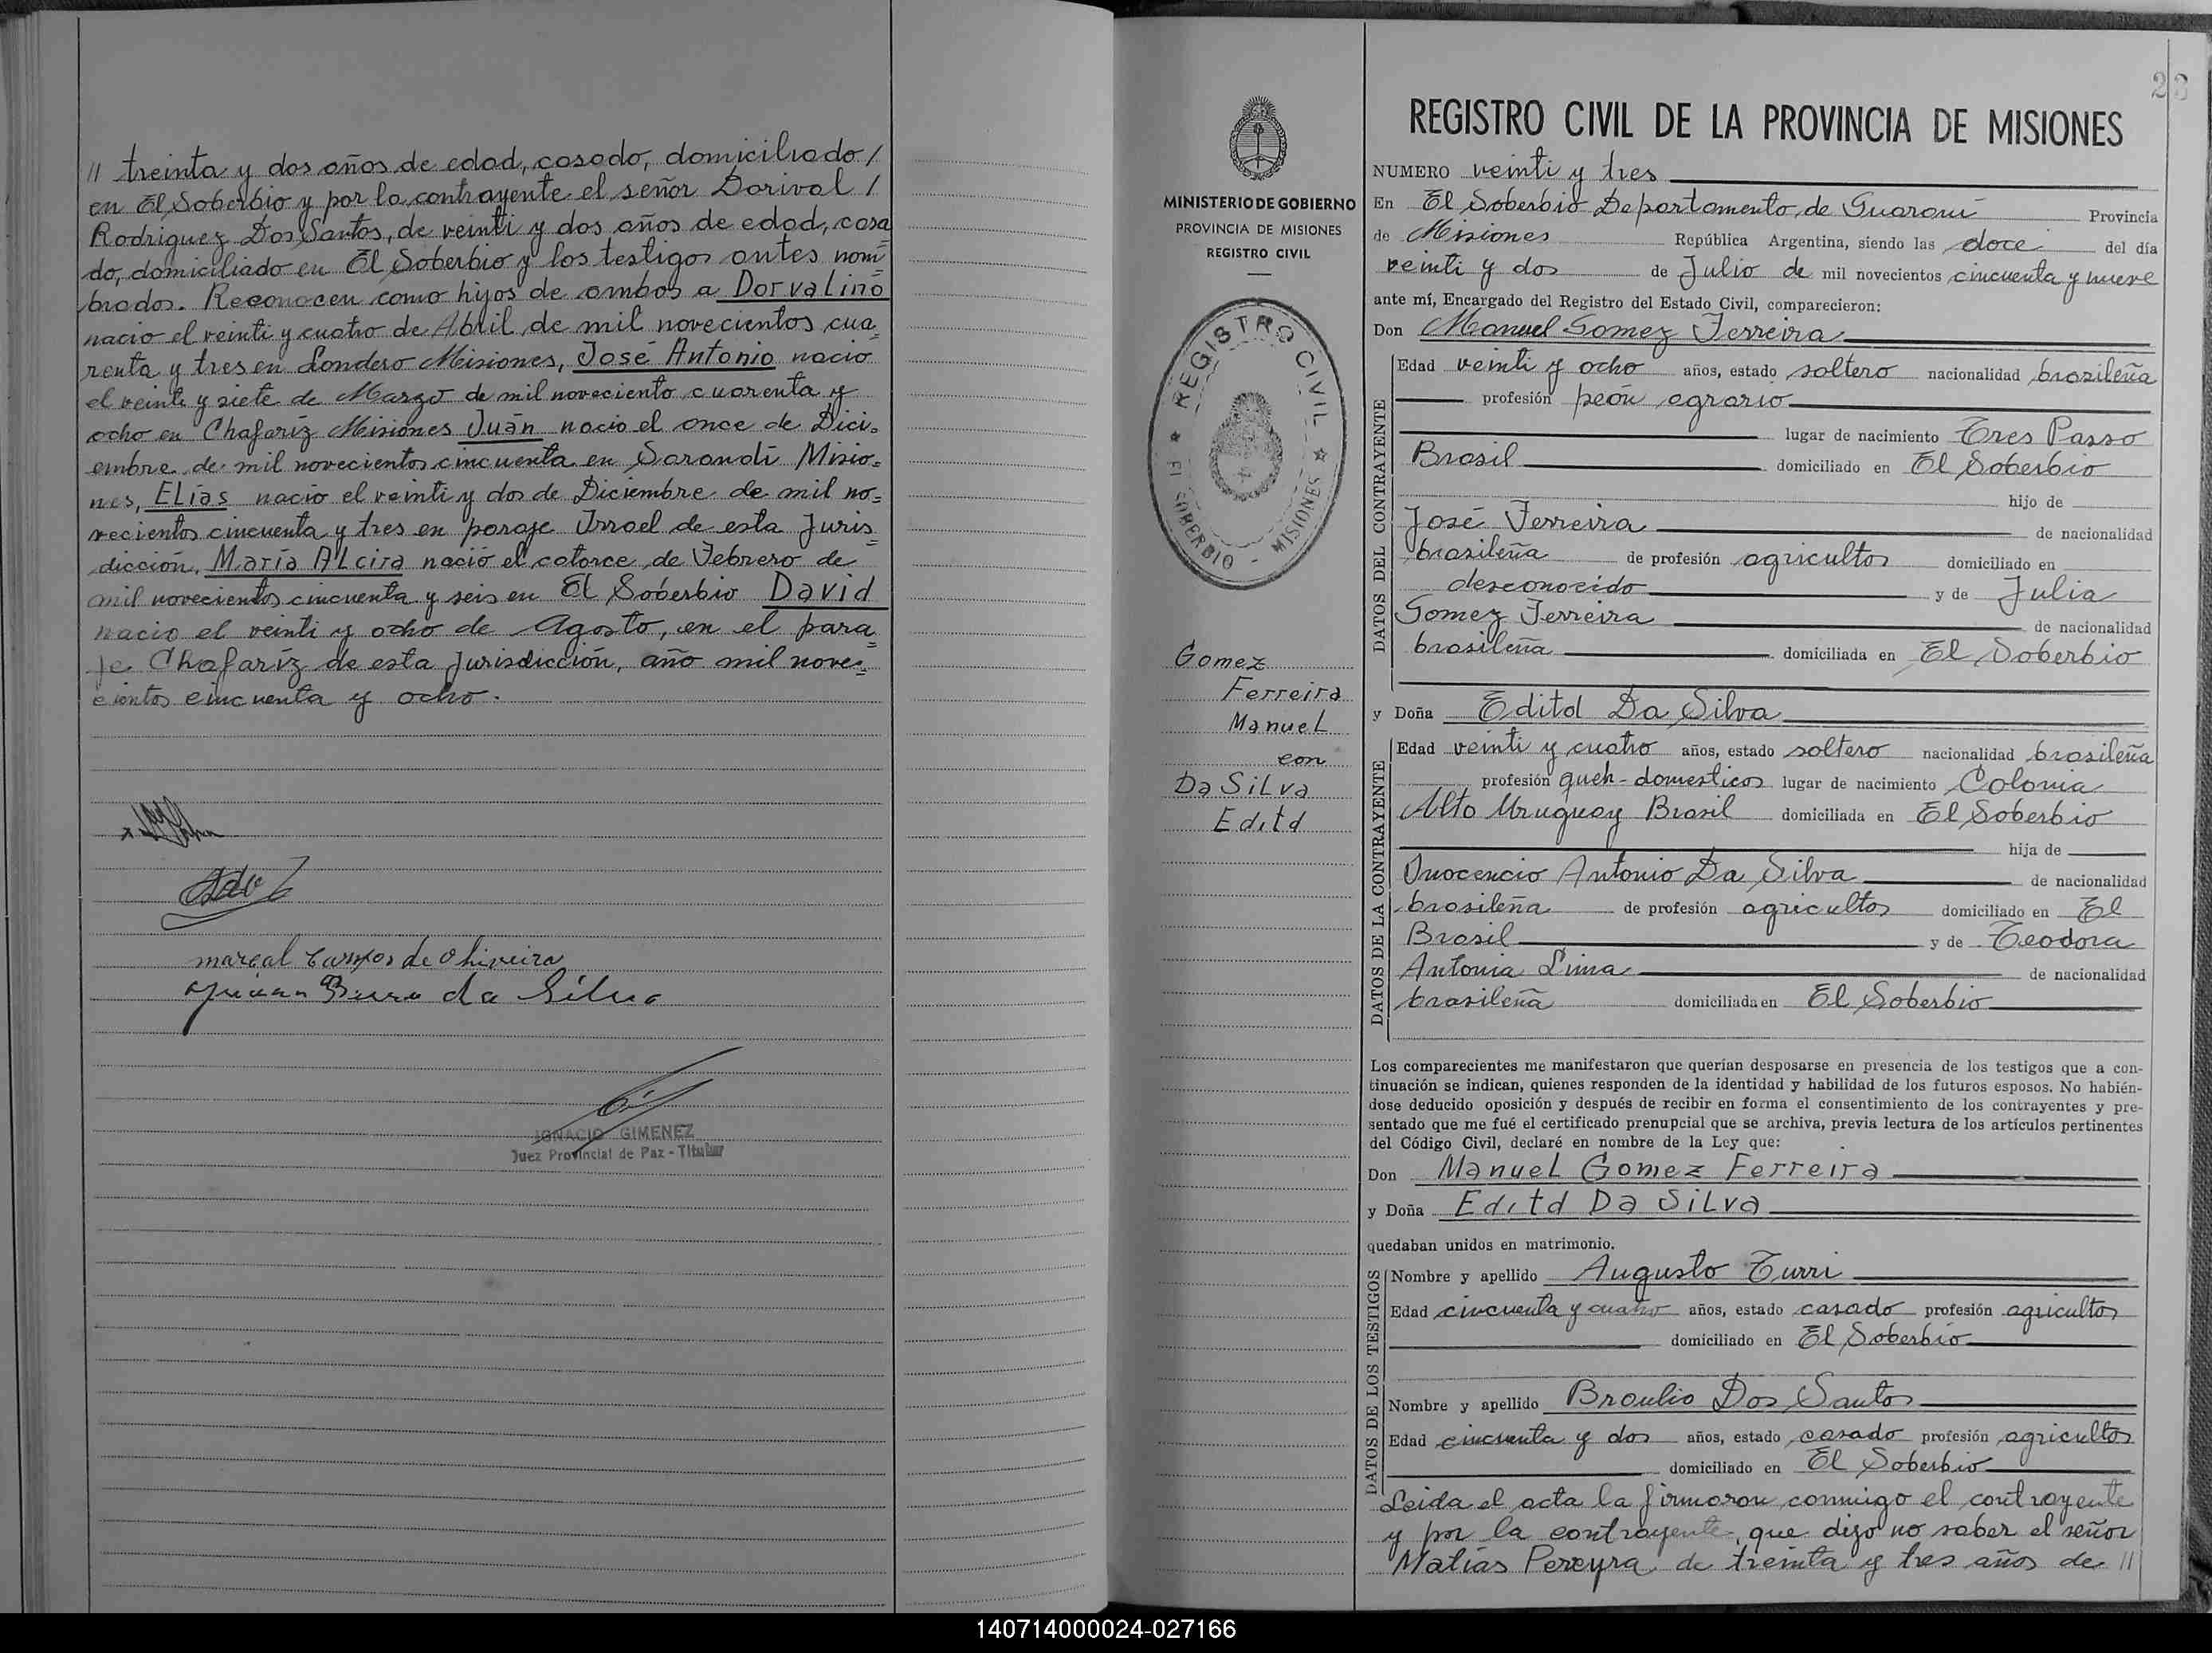 // treinta y dos años de edad, casado, domiciliado /
en El Soberbio y por la contrayente el señor Dorival /
Rodriguez Dos Santos, de veinti y dos años de edad, casa
do, domiciliado en El Soberbio y los testigos antes nom=
brados. Reconocen como hijos de ambos a Dorvalino
nacio el veinti y cuatro de Abril de mil novecientos cua=
renta y tres en Londero Misiones, José Antonio nacio
el veinti y siete de Marzo de mil noveciento cuarenta y
ocho en Chafariz Misiones Juán nacio el once de Dici=
embre de mil novecientos cincuenta en Sarandi Misio=
nes, ELías nacio el veinti y dos de Diciembre de mil no=
vecientos cincuenta y tres en paraje Israel de esta Juris=
dicción, María ALcira nació el catorce de Febrero de
mil novecientos cincuenta y seis en El Soberbio David
nacio el veinti y ocho de Agosto, en el para=
je Chafaríz de esta Jurisdicción, año mil nove=
cientos cincuenta y ocho.
marcal Campos de Oliveira
da Silva
IGNACIO GIMENEZ
Juez Provincial de Paz - Titular
23
MINISTERIO DE GOBIERNO
PROVINCIA DE MISIONES
REGISTRO CIVIL
REGISTRO CIVIL
EL SOBERBIO - MISIONES
Gomez
Ferreira
ManueL
con
Da SiLva
Editd
REGISTRO CIVIL DE LA PROVINCIA DE MISIONES
NUMERO veinti y tres
En El Soberbio Departamento de Guaraní Provincia
de Misiones República Argentina, siendo las doce del día
veinti y dos de Julio de mil novecientos cincuenta y nueve
ante mí, Encargado del Registro del Estado Civil, comparecieron:
Don Manuel Gomez Ferreira
DATOS DEL CONTRAYENTE
Edad veinti y ocho años, estado soltero nacionalidad brasileña
profesión peón agrario
lugar de nacimiento Tres Passo
Brasil domiciliado en El Soberbio
hijo de
José Ferreira de nacionalidad
brasileña de profesión agricultor domiciliado en
desconocido y de Julia
Gomez Ferreira de nacionalidad
brasileña domiciliada en El Soberbio
y Doña Editd Da Silva
DATOS DE LA CONTRAYENTE
Edad veinti y cuatro años, estado soltero nacionalidad brasileña
profesión queh-domesticos lugar de nacimiento Colonia
Alto Uruguay Brasil domiciliada en El Soberbio
hija de
Inocencio Antonio Da Silva de nacionalidad
brasileña de profesión agricultor domiciliado en El
Brasil y de Teodora
Antonia Lima de nacionalidad
brasileña domiciliada en El Soberbio
Los comparecientes me manifestaron que querían desposarse en presencia de los testigos que a con-
tinuación se indican, quienes responden de la identidad y habilidad de los futuros esposos. No habién-
dose deducido oposición y después de recibir en forma el consentimiento de los contrayentes y pre-
sentado que me fué el certificado prenupcial que se archiva, previa lectura de los artículos pertinentes
del Código Civil, declaré en nombre de la Ley que:
Don ManueL Gomez Ferreira
y Doña Editd Da SiLva
quedaban unidos en matrimonio.
DATOS DE LOS TESTIGOS
Nombre y apellido Augusto Turri
Edad cincuenta y cuatro años, estado casado profesión agricultor
domiciliado en El Soberbio
Nombre y apellido Braulio Dos Santos
Edad cincuenta y dos años, estado casado profesión agricultor
domiciliado en El Soberbio
Leida el acta la firmaron conmigo el contrayente
y por la contrayente que dijo no saber el señor
Matías Pereyra de treinta y tres años de //
140714000024-027166